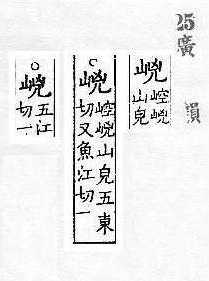 25廣韻
㟅
崆㟅
山皃
○㟅
崆㟅山皃五東
切又魚江切一
○㟅
五江
切一